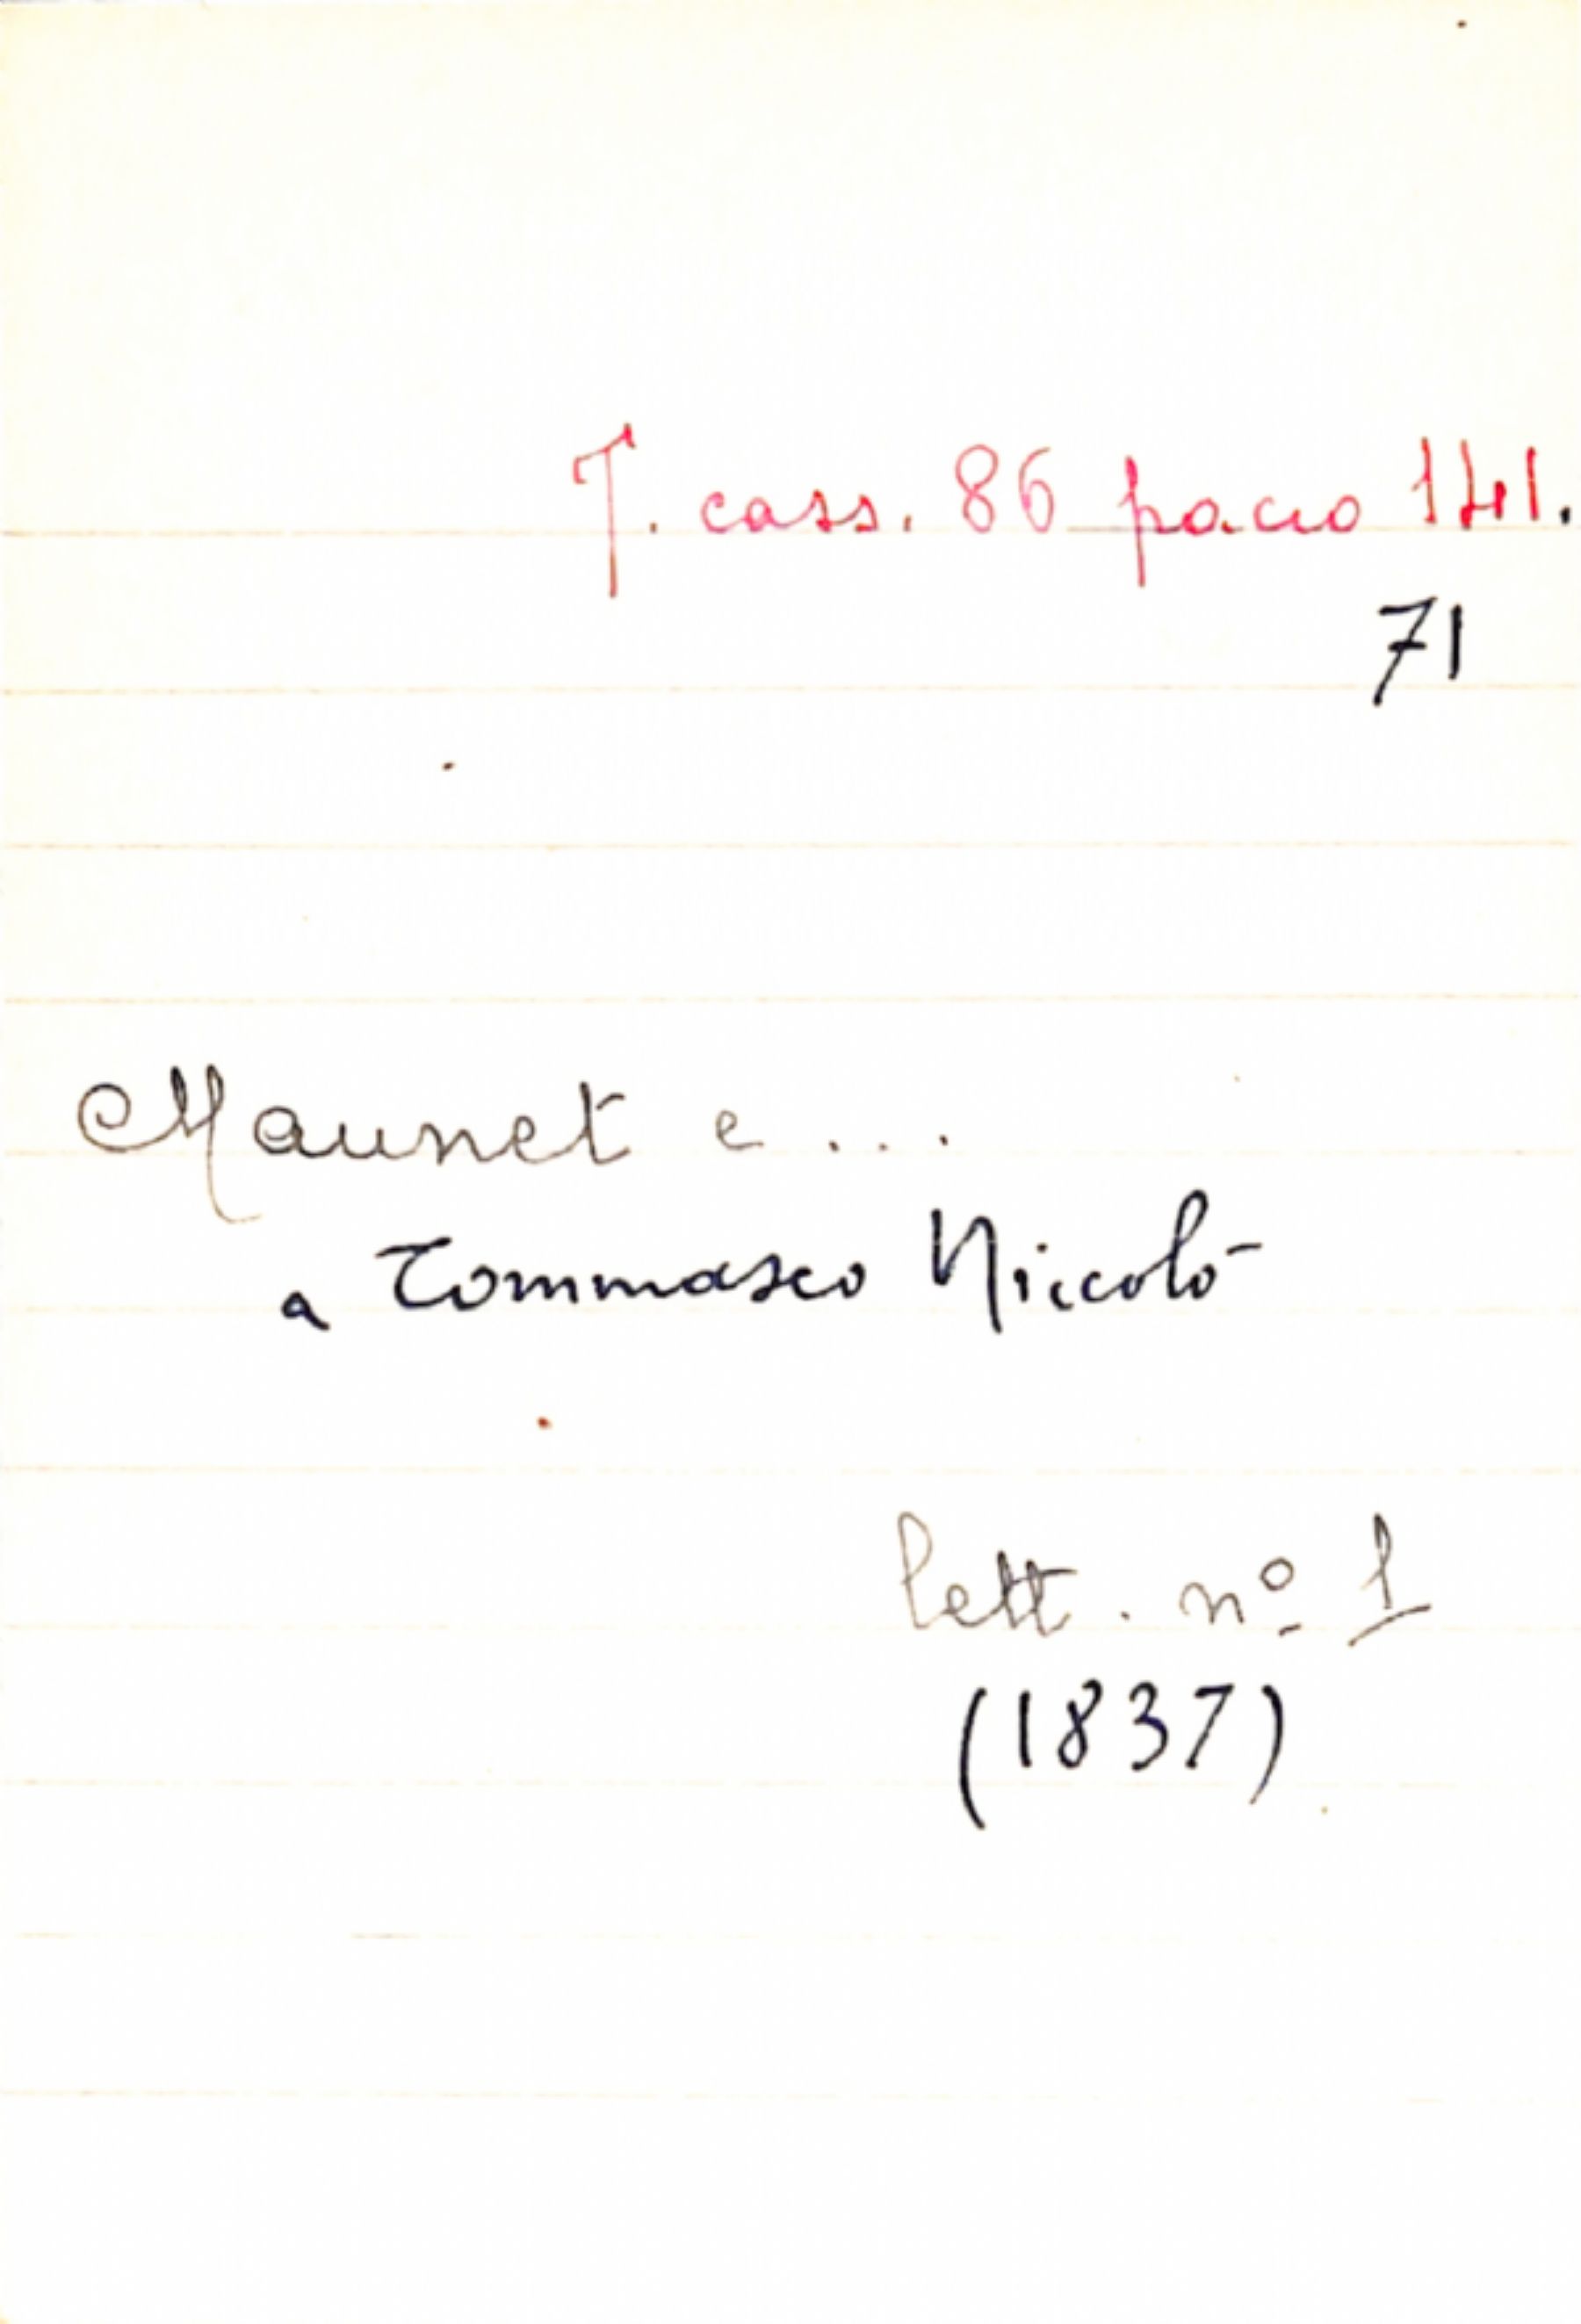 T. cass. 86 pacco 141.
71
Maunet e ...
a Tommaseo Niccolò
lett. nº 1
(1837)